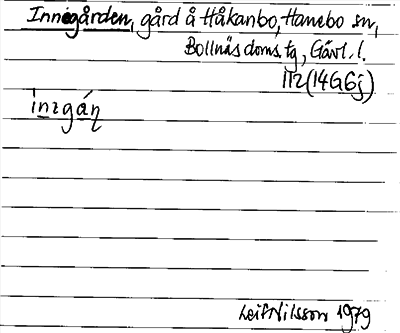 Innegården, gård å Håkanbo, Hanebo sn,
Bollnäs doms. tg, Gävl. l.
ITz(14G6j)
inɛgáṇ
Leif Nilsson 1979